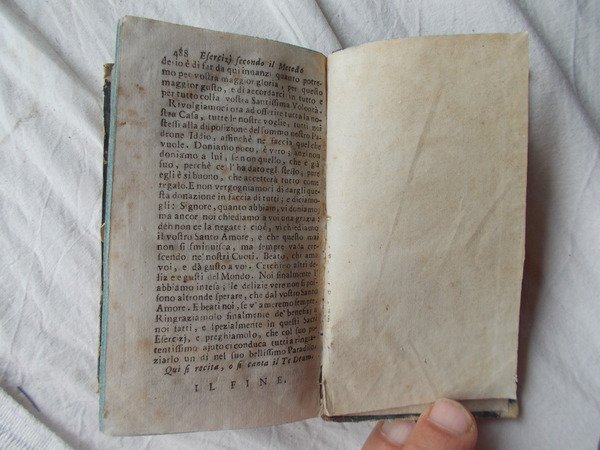 488 Esercizj secondo il Metodo
desio è di far da qui innanzi quanto potre-
mo per vostra maggior gloria, per questo
maggior gusto, e di accordarci in tutto e
per tutto colla vostra Santissima Volontà.
Rivolgiamoci ora ad offerire tutta la no-
stra Casa, tutte le nostre voglie, tutti noi
stessi alla disposizione del sommo nostro Pa-
drone Iddio, affinchè ne faccia quel che
vuole. Doniamo poco, è vero; anzi non
doniamo a lui, se non quello, che è già
suo, perchè ce l'ha dato egli stesso; pure
egli è sì buono, che accetterà tutto come
regalo. E non vergogniamoci di dargli que-
sta donazione in faccia di tutti; e diciamo-
gli: Signore, quanto abbiam, vi doniamo,
ma ancor noi chiediamo a voi una grazia:
deh non ce la negate: cioè, vi chiediamo
il vostro Santo Amore, e che questo mai
non si sminuisca, ma sempre vada cre-
scendo ne' nostri Cuori. Beato, chi ama
voi, e dà gusto a voi. Cerchino altri de-
lizie e gusti del Mondo. Noi finalmente l'
abbiamo intesa; le delizie vere non si pos-
sono altronde sperare, che dal vostro Santo
Amore. E beati noi, se v' ameremo sempre.
Ringraziamolo finalmente de' benefizj a
noi fatti, e spezialmente in questi Sacri
Esercizj, e preghiamolo, che col suo po-
tentissimo ajuto ci conduca tutti a ringra-
ziarlo un dì nel suo bellissimo Paradiso.
Qui si recita, o si canta il Te Deum.
IL FINE.